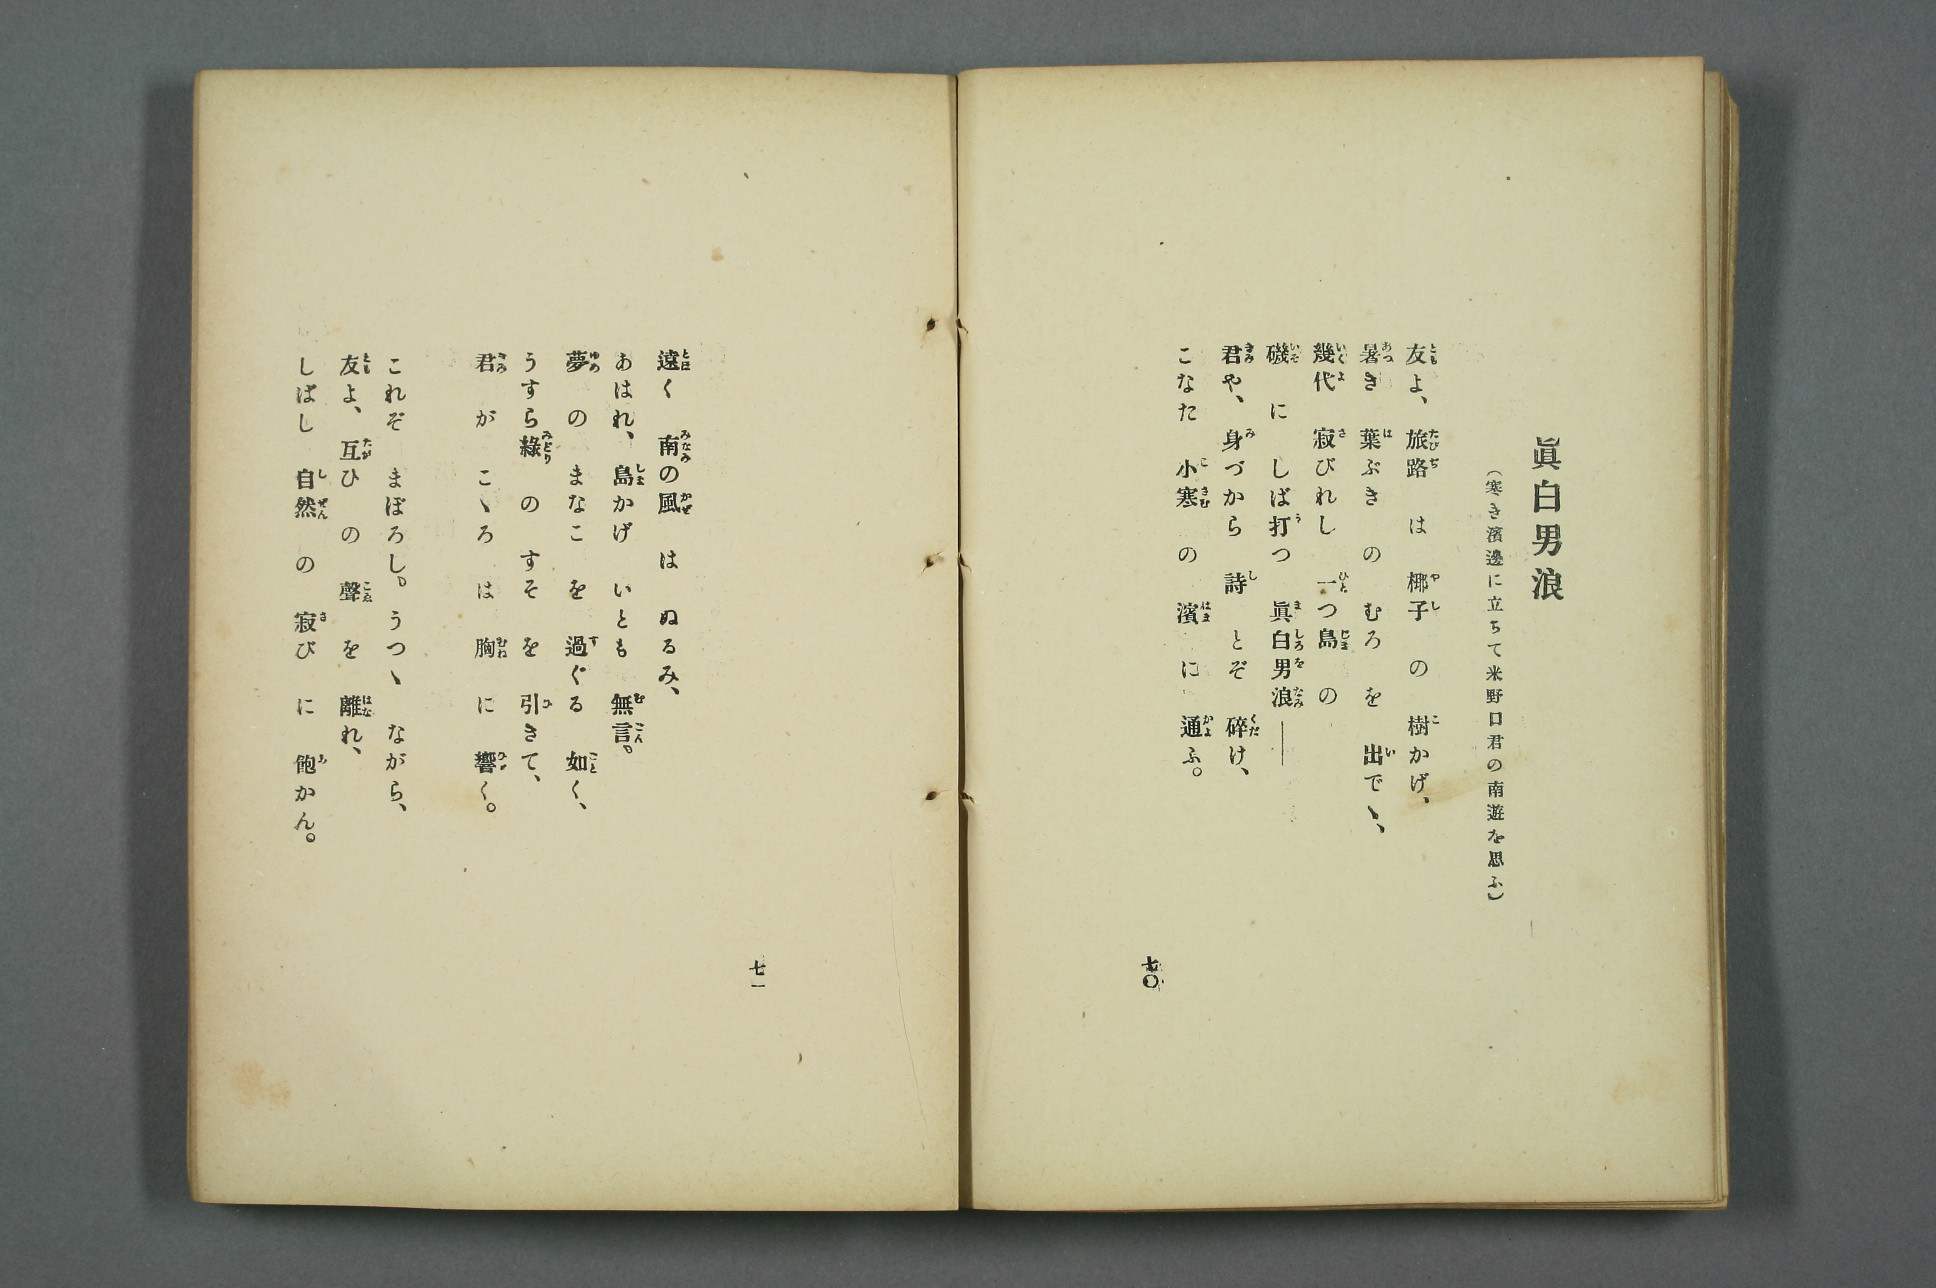 眞白男浪
（寒き濱邊に立ちて米野口君の南遊を思ふ）
友よ、旅路 は 椰子 の 樹かげ、
暑き 葉ぶき の むろ を 出でゝ、
幾代 寂びれし 一つ島 の
磯 に しば打つ 眞白男浪――
君や、身づから 詩 とぞ 碎け、
こなた 小寒 の 濱 に 通ふ。
七〇
遠く 南の風 は ぬるみ、
あはれ、島かげ いとも 無言。
夢 の まなこ を 過ぐる 如く、
うすら綠 の すそ を 引きて、
君 が こゝろ は 胸 に 響く。
これぞ まぼろし。うつゝ ながら、
友よ、互ひ の 聲 を 離れ、
しばし 自然 の 寂び に 飽かん。
七一